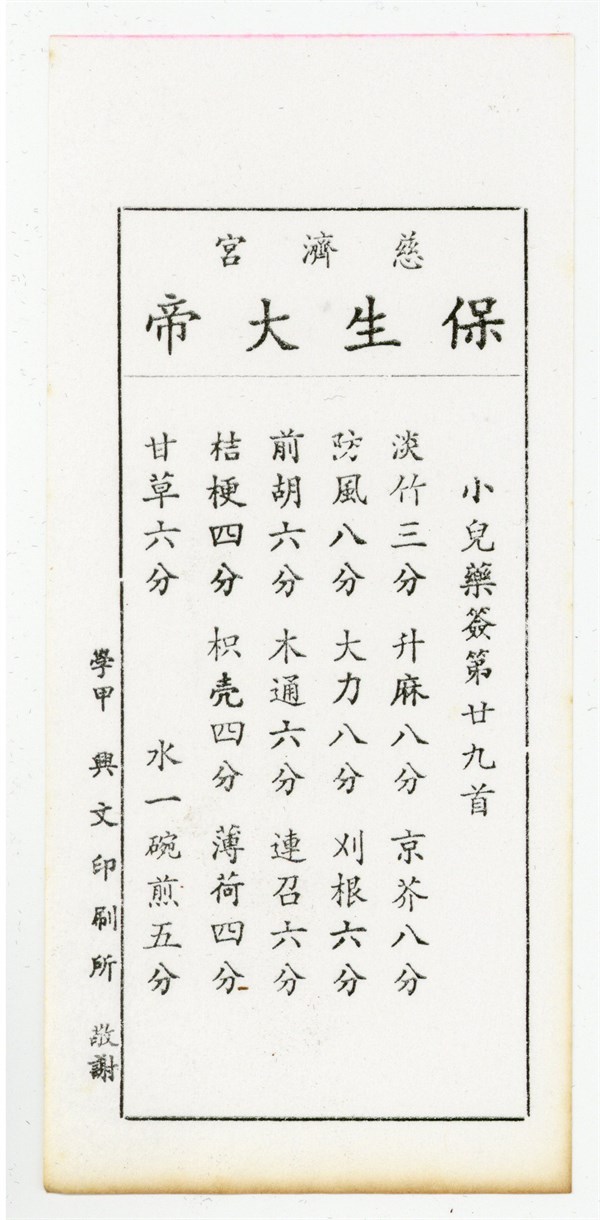 慈濟宮
保生大帝
小兒藥簽第廿九首
淡竹三分 升麻八分 京芥八分
防風八分 大力八分 刈根六分
前胡六分 木通六分 連召六分
桔梗四分 枳壳四分 薄荷四分
甘草六分 水一碗煎五分
學甲 興文印刷所 敬謝